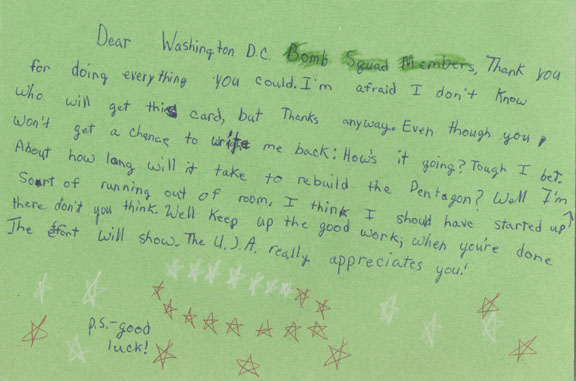 Dear Washington D.C. Bomb Squad Members, Thank you
for doing everything you could. I'm afraid I don't know
who will get this card, but Thanks anyway. Even though you
won't get a chance to write me back: How's it going? Tough I bet.
About how long will it take to rebuild the Pentagon? Well I'm
Sort of running out of room, I think I should have started up ↑
there don't you think. Well keep up the good work; when you're done
The effort will show. The U.S.A. really appreciates you!
p.s.-good
luck!